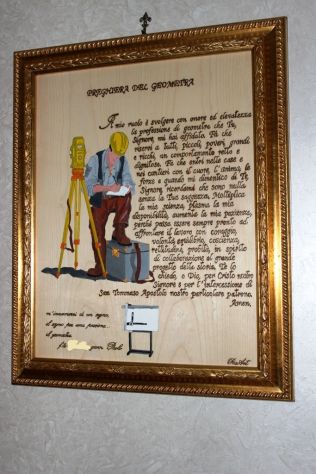 PREGHIERA DEL GEOMETRA
Il mio ruolo è svolgere con onore ed elevatezza
la professione di geometra che Te,
Signore, mi hai affidato. Fa che
riservi a tutti, piccoli, poveri, grandi
e ricchi, un comportamento retto e
dignitoso. Fa che entri nelle case e
nei cantieri con il cuore, l'anima, la
forza e quando mi dimentico di Te,
Signore, ricordami che sono nulla
senza la Tua saggezza. Moltiplica
la mia scienza, plasma la mia
disponibilità, aumenta la mia pazienza,
perché possa essere sempre pronto ad
affrontare il lavoro con coraggio,
volontà, equilibrio, coscienza,
rettitudine, probità, in spirito
di collaborazione al grande
progetto della storia. Te lo
chiedo, o Dio, per Cristo nostro
Signore e per l'intercessione di
San Tommaso Apostolo nostro particolare patrono.
Amen.